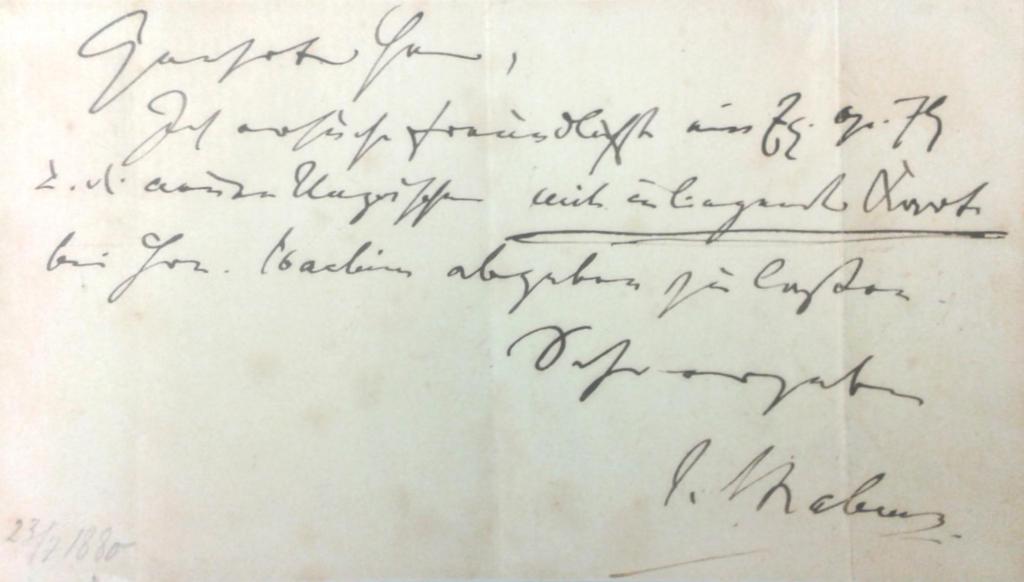 Geehrter Herr,
Ich ersuche freundlichst ein Ex. op. 79
u. d. neuen Ungrischen mit inliegender Karte
bei Hrn. Joachim abgeben zu laßen
Sehr ergeben
J. Brahms.
23/7 1880